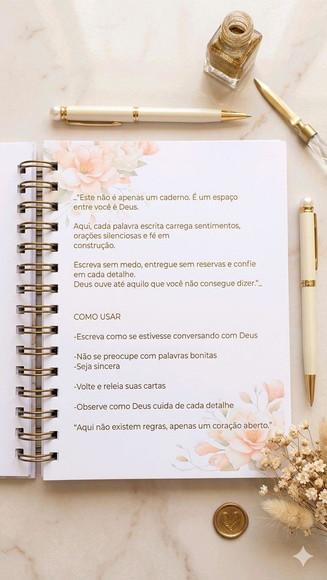 _"Este não é apenas um caderno. É um espaço
entre você é Deus.
Aqui, cada palavra escrita carrega sentimentos,
orações silenciosas e fé em
construção.
Escreva sem medo, entregue sem reservas e confie
em cada detalhe.
Deus ouve até aquilo que você não consegue dizer."_
COMO USAR
-Escreva como se estivesse conversando com Deus
-Não se preocupe com palavras bonitas
-Seja sincera
-Volte e releia suas cartas
-Observe como Deus cuida de cada detalhe
"Aqui não existem regras, apenas um coração aberto."